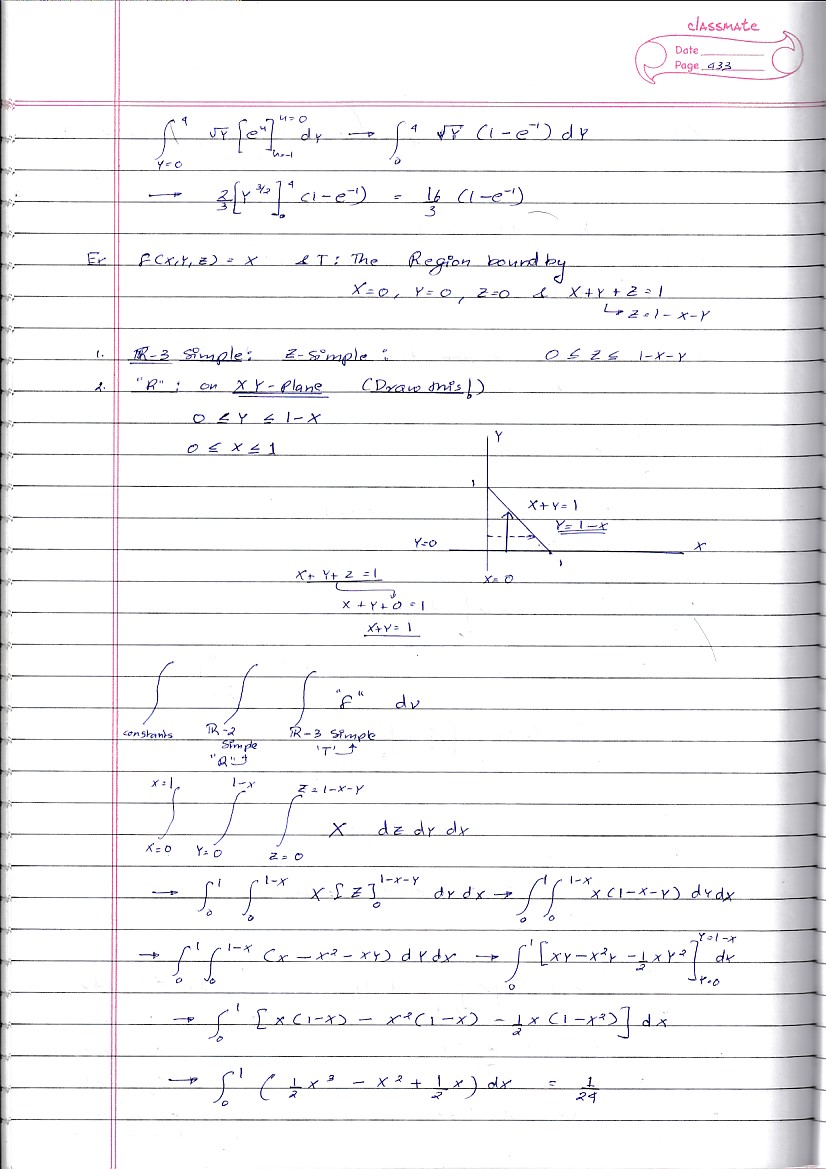 classmate
Date
Page 433
∫_{Y=0}^{4} √Y [e^u]_{u=-1}^{u=0} dY → ∫_0^4 √Y (1-e^{-1}) dY
→ 2/3 [Y^{3/2}]_0^4 (1-e^{-1}) = 16/3 (1-e^{-1})
Ex F(X,Y,Z) = X & T: The Region bound by
X=0, Y=0, Z=0 & X+Y+Z=1
↳ Z=1-X-Y
1. R-3 Simple: Z-Simple: 0 ≤ Z ≤ 1-X-Y
2. "R": on XY-Plane (Draw this!)
0 ≤ Y ≤ 1-X
0 ≤ X ≤ 1
Y
1
X+Y=1
Y=1-X
Y=0
X
1
X=0
X+Y+Z=1
X+Y+0=1
X+Y=1
∫ ∫ ∫ "F" dv
constants R-2 Simple "R" R-3 Simple 'T'
∫_{X=0}^{X=1} ∫_{Y=0}^{1-X} ∫_{Z=0}^{Z=1-X-Y} X dZ dY dX
→ ∫_0^1 ∫_0^{1-X} X [Z]_0^{1-X-Y} dY dX → ∫_0^1 ∫_0^{1-X} X(1-X-Y) dY dX
→ ∫_0^1 ∫_0^{1-X} (X - X² - XY) dY dX → ∫_0^1 [XY - X²Y - 1/2 XY²]_{Y=0}^{Y=1-X} dX
→ ∫_0^1 [X(1-X) - X²(1-X) - 1/2 X(1-X²)] dX
→ ∫_0^1 (1/2 X³ - X² + 1/2 X) dX = 1/24